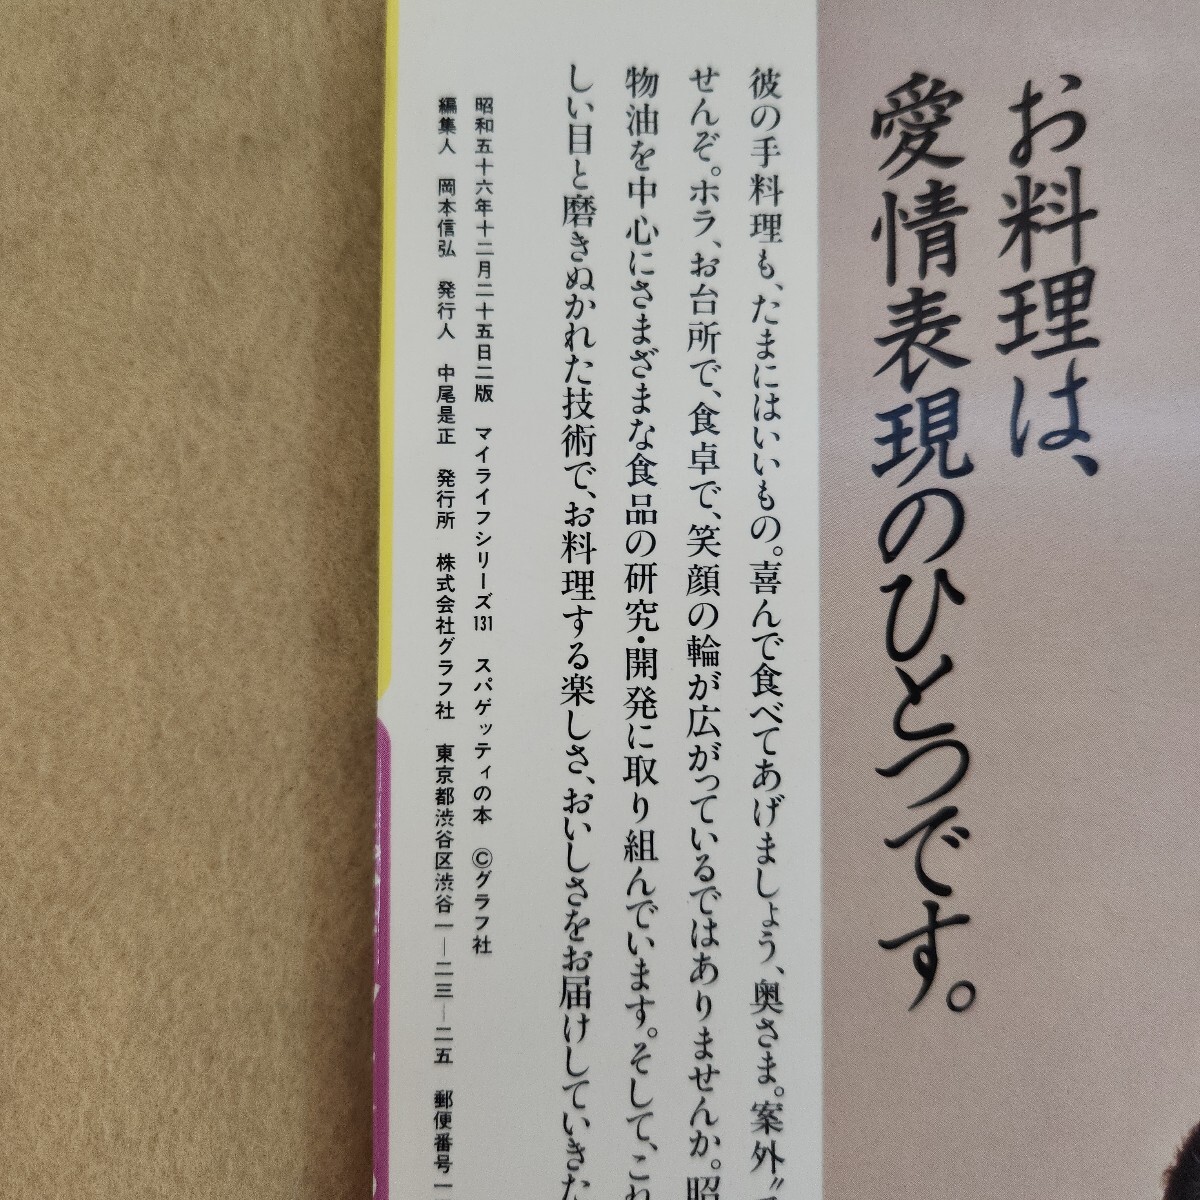 お料理は、
愛情表現のひとつです。
彼の手料理も、たまにはいいもの。喜んで食べてあげましょう、奥さま。案外〝
せんぞ。ホラ、お台所で、食卓で、笑顔の輪が広がっているではありませんか。昭
物油を中心にさまざまな食品の研究・開発に取り組んでいます。そして、これ
しい目と磨きぬかれた技術で、お料理する楽しさ、おいしさをお届けしていきた
昭和五十六年十二月二十五日二版 マイライフシリーズ131 スパゲッティの本 ©グラフ社
編集人 岡本信弘 発行人 中尾是正 発行所 株式会社グラフ社 東京都渋谷区渋谷一—二三—二五 郵便番号一